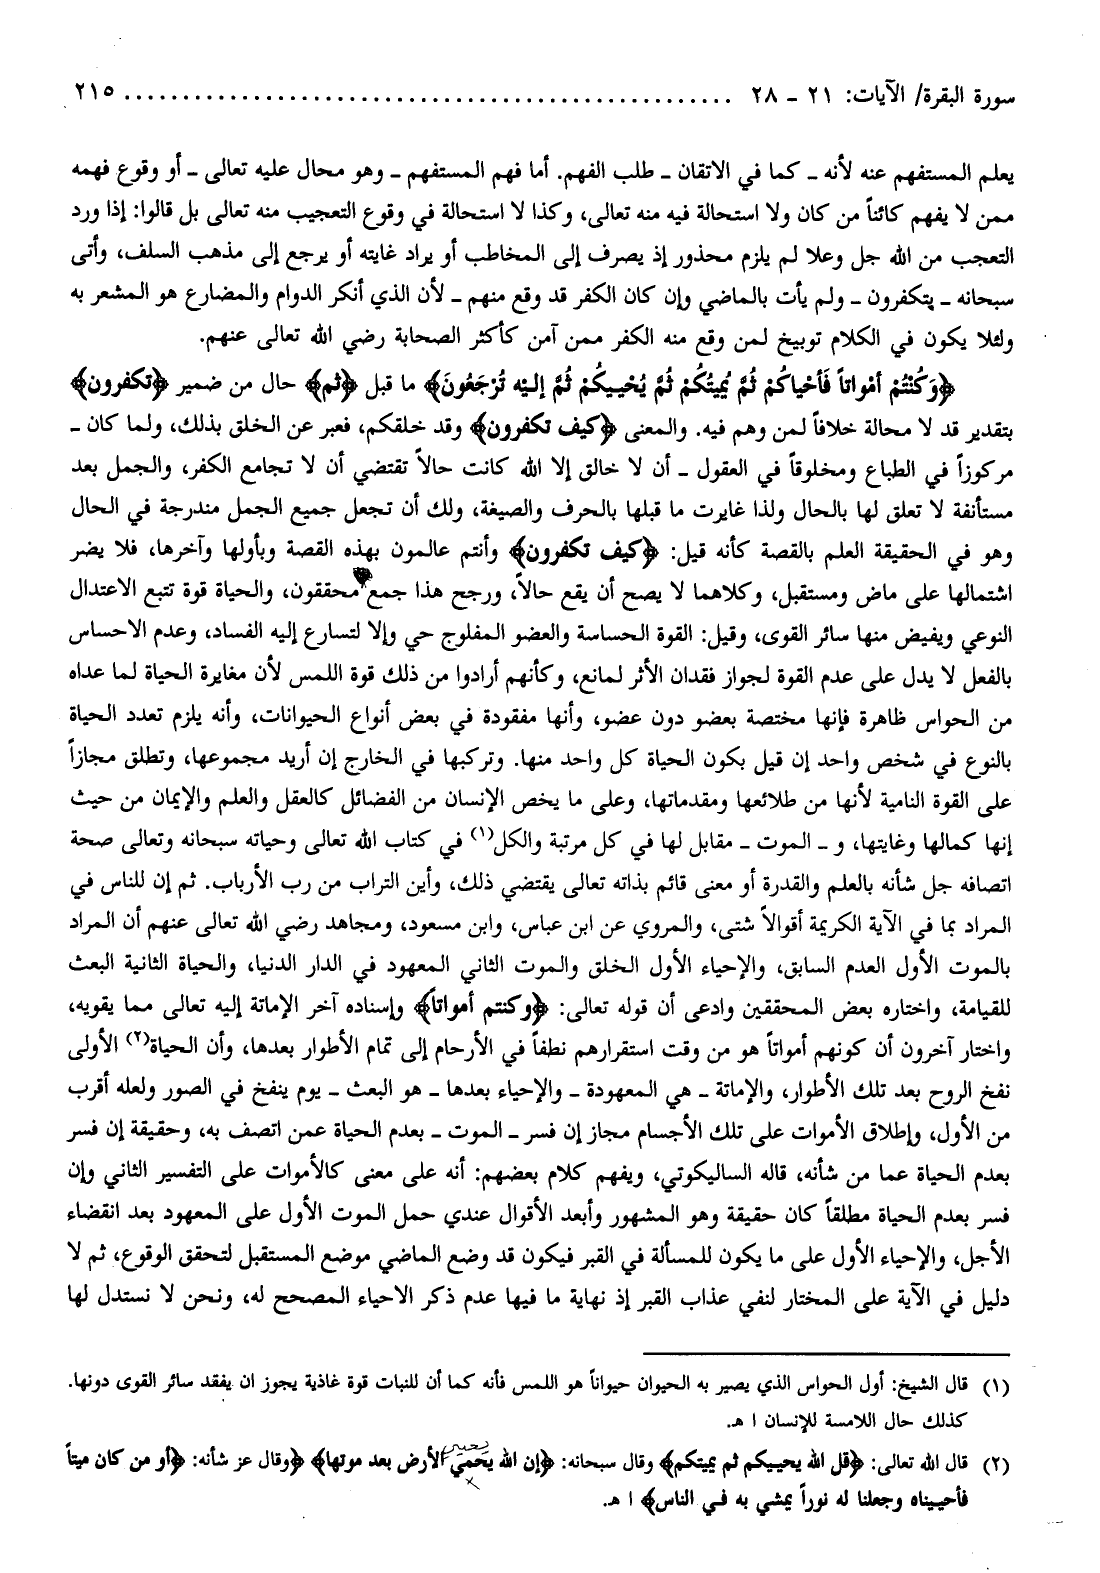 سورة البقرة/ الآيات: ٢١ - ٢٨ ........................................................ ٢١٥
يعلم المستفهم عنه لأنه ـ كما في الاتقان ـ طلب الفهم. أما فهم المستفهم ـ وهو محال عليه تعالى ـ أو وقوع فهمه
ممن لا يفهم كائناً من كان ولا استحالة فيه منه تعالى، وكذا لا استحالة في وقوع التعجيب منه تعالى بل قالوا: إذا ورد
التعجب من الله جل وعلا لم يلزم محذور إذ يصرف إلى المخاطب أو يراد غايته أو يرجع إلى مذهب السلف، وأتى
سبحانه ـ بتكفرون ـ ولم يأت بالماضي وإن كان الكفر قد وقع منهم ـ لأن الذي أنكر الدوام والمضارع هو المشعر به
ولئلا يكون في الكلام توبيخ لمن وقع منه الكفر ممن آمن كأكثر الصحابة رضي الله تعالى عنهم.
﴿وَكُنْتُمْ أمْواتاً فَأحْياكُمْ ثُمَّ يُمِيتُكُمْ ثُمَّ يُحْيـيكُمْ ثُمَّ إلـيْه تُرْجَعُونَ﴾ ما قبل ﴿ثم﴾ حال من ضمير ﴿تكفرون﴾
بتقدير قد لا محالة خلافاً لمن وهم فيه. والمعنى ﴿كيف تكفرون﴾ وقد خلقكم، فعبر عن الخلق بذلك، ولما كان ـ
مركوزاً في الطباع ومخلوقاً في العقول ـ أن لا خالق إلا الله كانت حالاً تقتضي أن لا تجامع الكفر، والجمل بعد
مستأنفة لا تعلق لها بالحال ولذا غايرت ما قبلها بالحرف والصيغة، ولك أن تجعل جميع الجمل مندرجة في الحال
وهو في الحقيقة العلم بالقصة كأنه قيل: ﴿كيف تكفرون﴾ وأنتم عالمون بهذه القصة وبأولها وآخرها، فلا يضر
اشتمالها على ماض ومستقبل، وكلاهما لا يصح أن يقع حالاً، ورجح هذا جمع محققون، والحياة قوة تتبع الاعتدال
النوعي ويفيض منها سائر القوى، وقيل: القوة الحساسة والعضو المفلوج حي وإلا لتسارع إليه الفساد، وعدم الاحساس
بالفعل لا يدل على عدم القوة لجواز فقدان الأثر لمانع، وكأنهم أرادوا من ذلك قوة اللمس لأن مغايرة الحياة لما عداه
من الحواس ظاهرة فإنها مختصة بعضو دون عضو، وأنها مفقودة في بعض أنواع الحيوانات، وأنه يلزم تعدد الحياة
بالنوع في شخص واحد إن قيل بكون الحياة كل واحد منها. وتركبها في الخارج إن أريد مجموعها، وتطلق مجازاً
على القوة النامية لأنها من طلائعها ومقدماتها، وعلى ما يخص الإنسان من الفضائل كالعقل والعلم والإيمان من حيث
إنها كمالها وغايتها، و ـ الموت ـ مقابل لها في كل مرتبة والكل(١) في كتاب الله تعالى وحياته سبحانه وتعالى صحة
اتصافه جل شأنه بالعلم والقدرة أو معنى قائم بذاته تعالى يقتضي ذلك، وأين التراب من رب الأرباب. ثم إن للناس في
المراد بما في الآية الكريمة أقوالاً شتى، والمروي عن ابن عباس، وابن مسعود، ومجاهد رضي الله تعالى عنهم أن المراد
بالموت الأول العدم السابق، والإحياء الأول الخلق والموت الثاني المعهود في الدار الدنيا، والحياة الثانية البعث
للقيامة، واختاره بعض المحققين وادعى أن قوله تعالى: ﴿وكنتم أمواتاً﴾ وإسناده آخر الإماتة إليه تعالى مما يقويه،
واختار آخرون أن كونهم أمواتاً هو من وقت استقرارهم نطفاً في الأرحام إلى تمام الأطوار بعدها، وأن الحياة(٢) الأولى
نفخ الروح بعد تلك الأطوار، والإماتة ـ هي المعهودة ـ والإحياء بعدها ـ هو البعث ـ يوم ينفخ في الصور ولعله أقرب
من الأول، وإطلاق الأموات على تلك الأجسام مجاز إن فسر ـ الموت ـ بعدم الحياة عمن اتصف به، وحقيقة إن فسر
بعدم الحياة عما من شأنه، قاله الساليكوتي، ويفهم كلام بعضهم: أنه على معنى كالأموات على التفسير الثاني وإن
فسر بعدم الحياة مطلقاً كان حقيقة وهو المشهور وأبعد الأقوال عندي حمل الموت الأول على المعهود بعد انقضاء
الأجل، والإحياء الأول على ما يكون للمسألة في القبر فيكون قد وضع الماضي موضع المستقبل لتحقق الوقوع، ثم لا
دليل في الآية على المختار لنفي عذاب القبر إذ نهاية ما فيها عدم ذكر الاحياء المصحح له، ونحن لا نستدل لها
(١) قال الشيخ: أول الحواس الذي يصير به الحيوان حيواناً هو اللمس فأنه كما أن للنبات قوة غاذية يجوز ان يفقد سائر القوى دونها.
كذلك حال اللامسة للإنسان ا هـ.
(٢) قال الله تعالى: ﴿قل الله يحيـيكم ثم يميتكم﴾ وقال سبحانه: ﴿إن الله يحمي الأرض بعد موتها﴾ ﴿وقال عز شأنه: ﴿أو من كان ميتاً
يحيي
فأحيـيناه وجعلنا له نوراً يمشي به فـي الناس﴾ ا هـ.